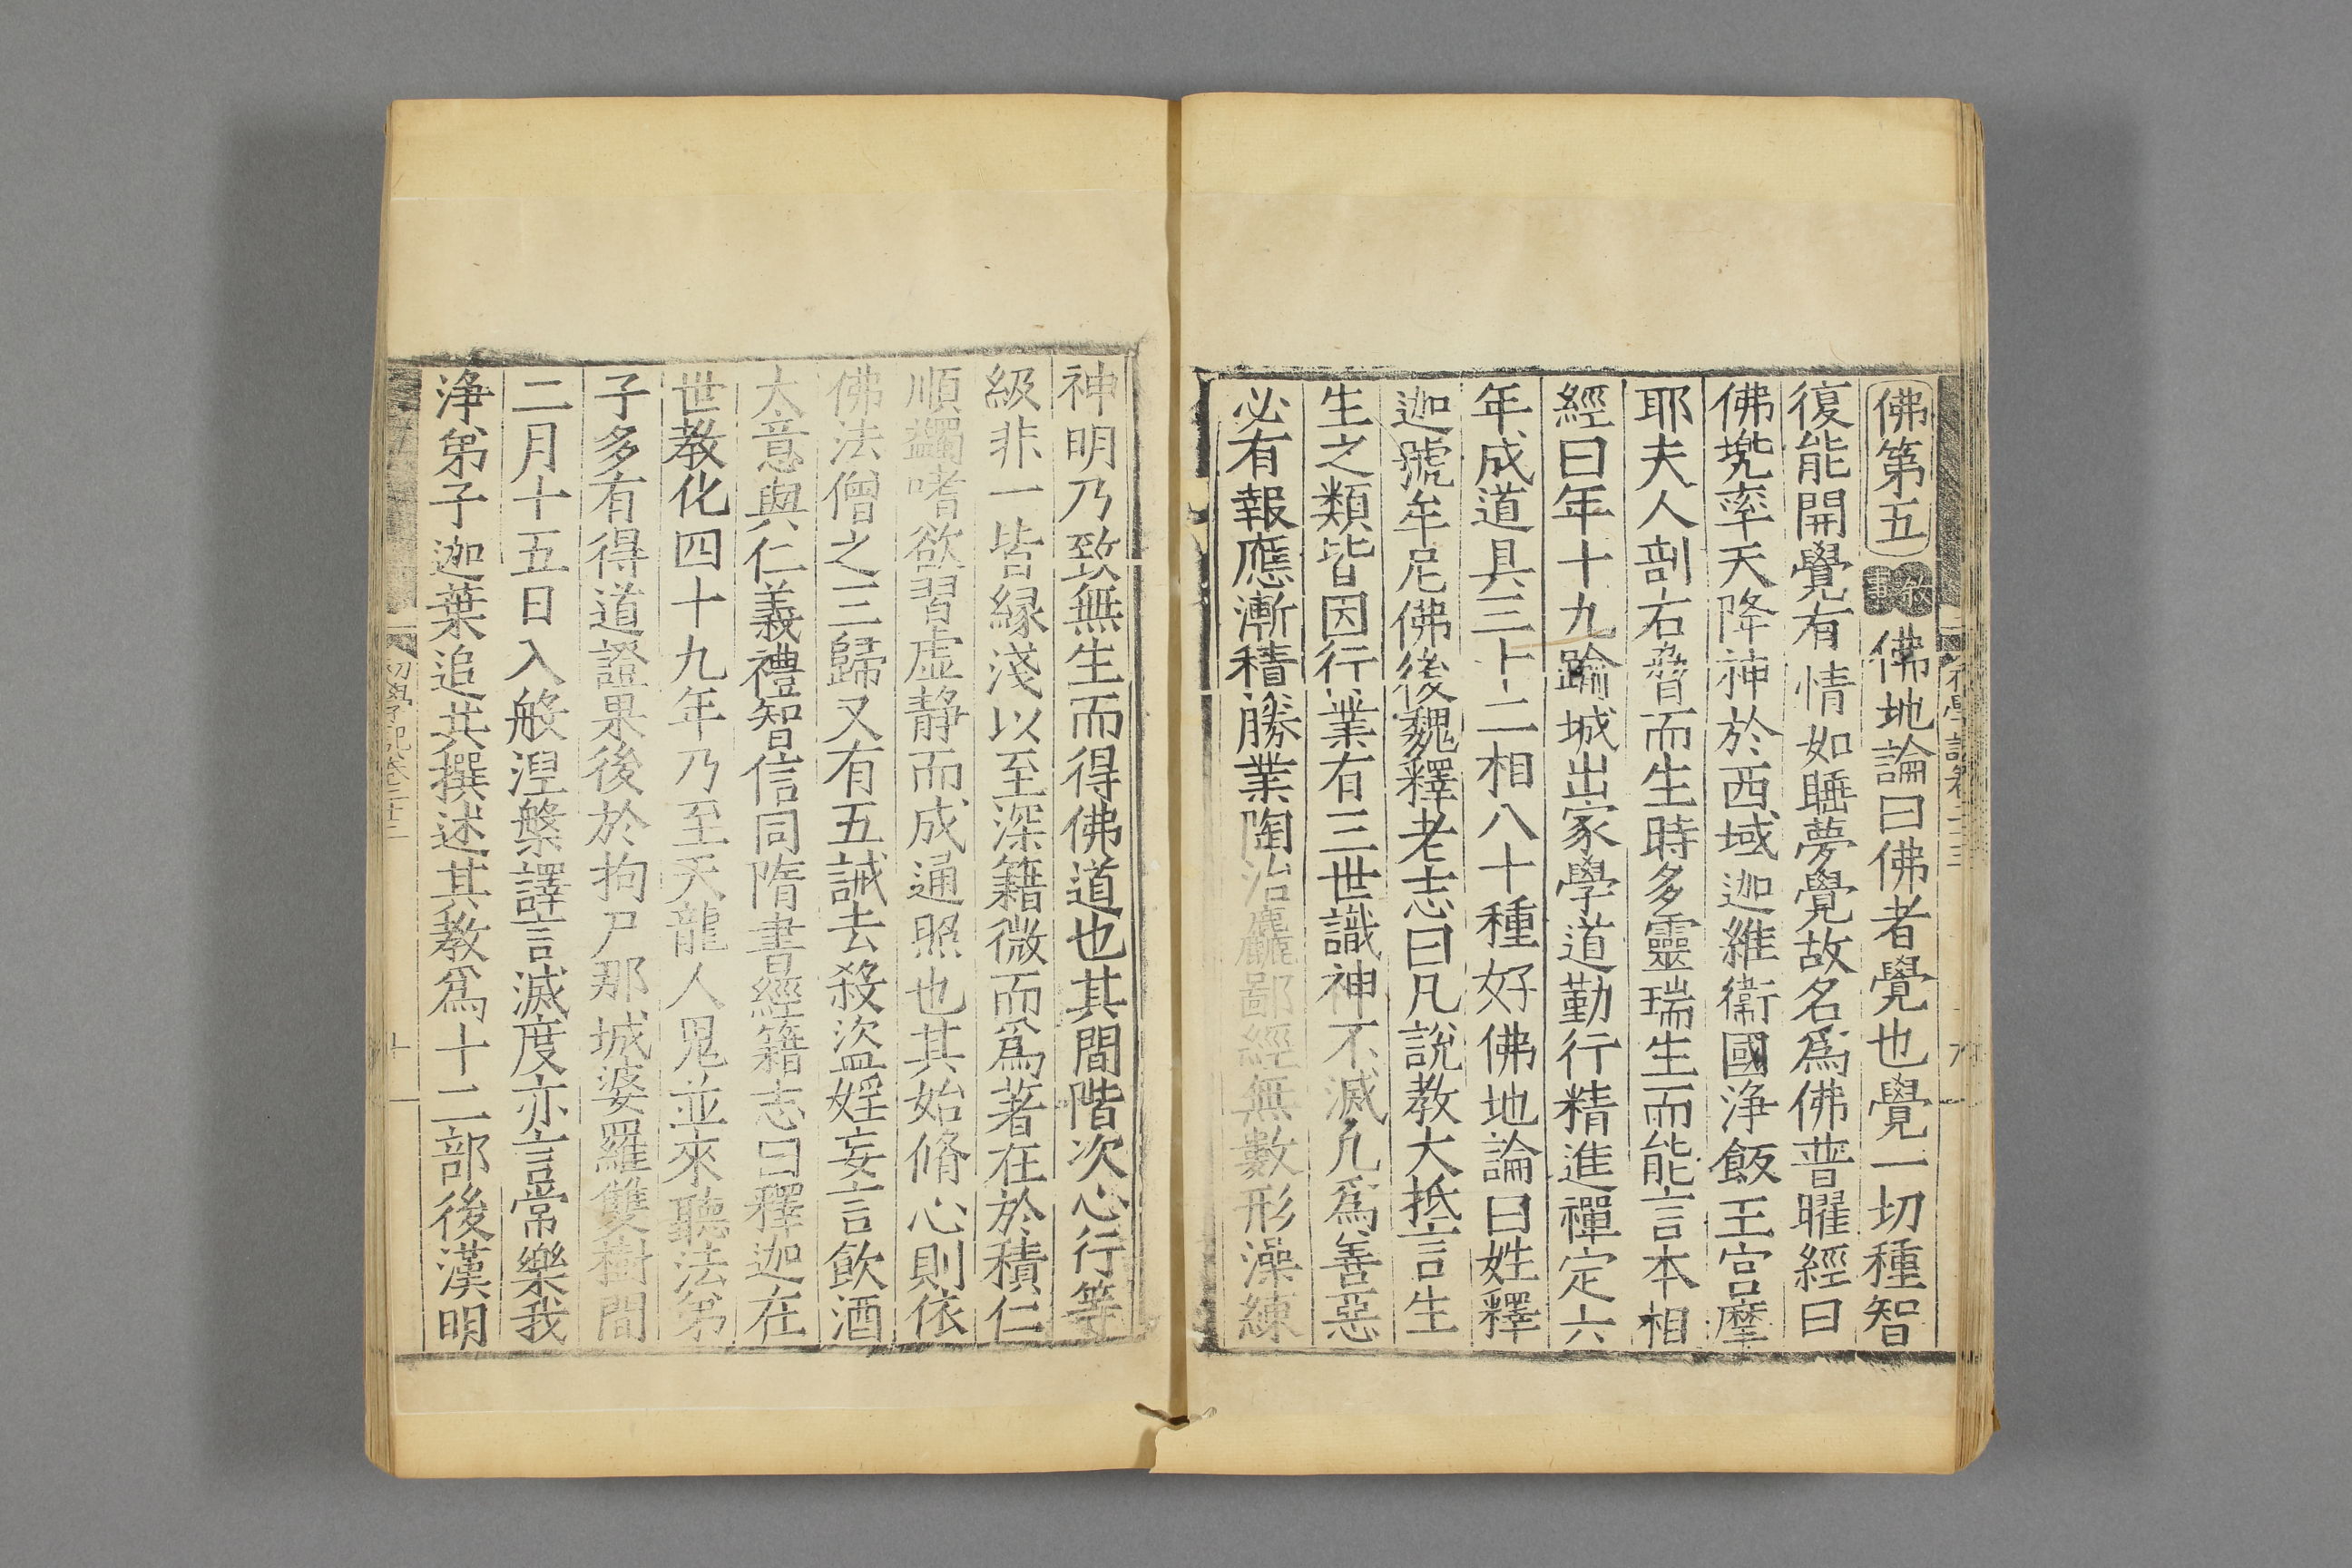 佛第五 敘事 佛地論曰佛者覺也覺一切種智
復能開覺有情如睡夢覺故名爲佛普曜經曰
佛兠率天降神於西域迦維衞國淨飯王宮摩
耶夫人剖右脅而生時多靈瑞生而能言本相
經曰年十九踰城出家學道勤行精進禪定六
年成道具三十二相八十種好佛地論曰姓釋
迦號牟尼佛後魏釋老志曰凡說教大抵言生
生之類皆因行業有三世識神不滅凡爲善惡
必有報應漸積勝業陶冶麤鄙經無數形澡練
神明乃致無生而得佛道也其間階次心行等
級非一皆緣淺以至深籍微而爲著在於積仁
順蠲嗜欲習虛靜而成通照也其始脩心則依
佛法僧之三歸又有五誡去殺盜婬妄言飲酒
大意與仁義禮智信同隋書經籍志曰釋迦在
世教化四十九年乃至天龍人鬼並來聽法弟
子多有得道證果後於拘尸那城婆羅雙樹間
二月十五日入般涅槃譯言滅度亦言常樂我
淨弟子迦葉追共撰述其教爲十二部後漢明
初學記卷二十三